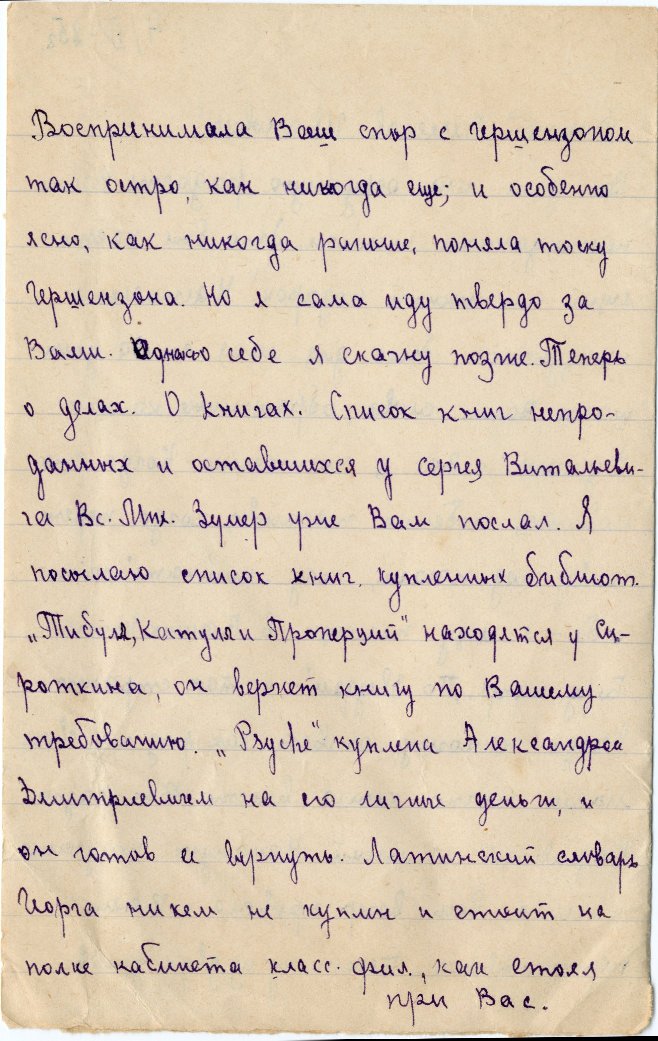 Воспринимала Ваш спор с Гершензоном
так остро, как никогда еще; и особенно
ясно, как никогда раньше, поняла тоску
Гершензона. Но я сама иду твердо за
Вами. Однако о себе я скажу позже. Теперь
о делах. О книгах. Список книг непро-
данных и оставшихся у Сергея Витальеви-
ча Вс. Мих. Зумер уже Вам послал. Я
посылаю список книг, купленных библиот.
„Тибулл, Катулл и Проперций" находятся у Си-
роткина, он вернет книгу по Вашему
требованию. „Psyche" куплена Александром
Дмитриевичем на его личные деньги, и
он готов ее вернуть. Латинский словарь
Георга никем не куплен и стоит на
полке кабинета класс. фил., как стоял
при Вас.